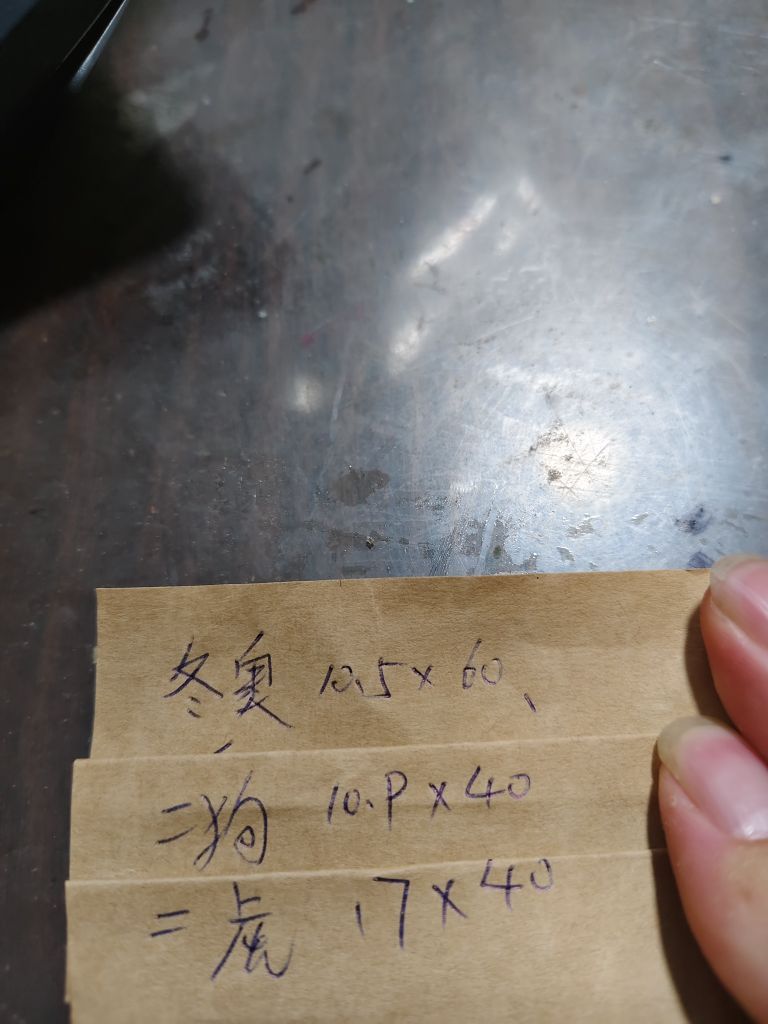 冬奥 10.5×60、
二狗 10.9×40
二虎 17×40